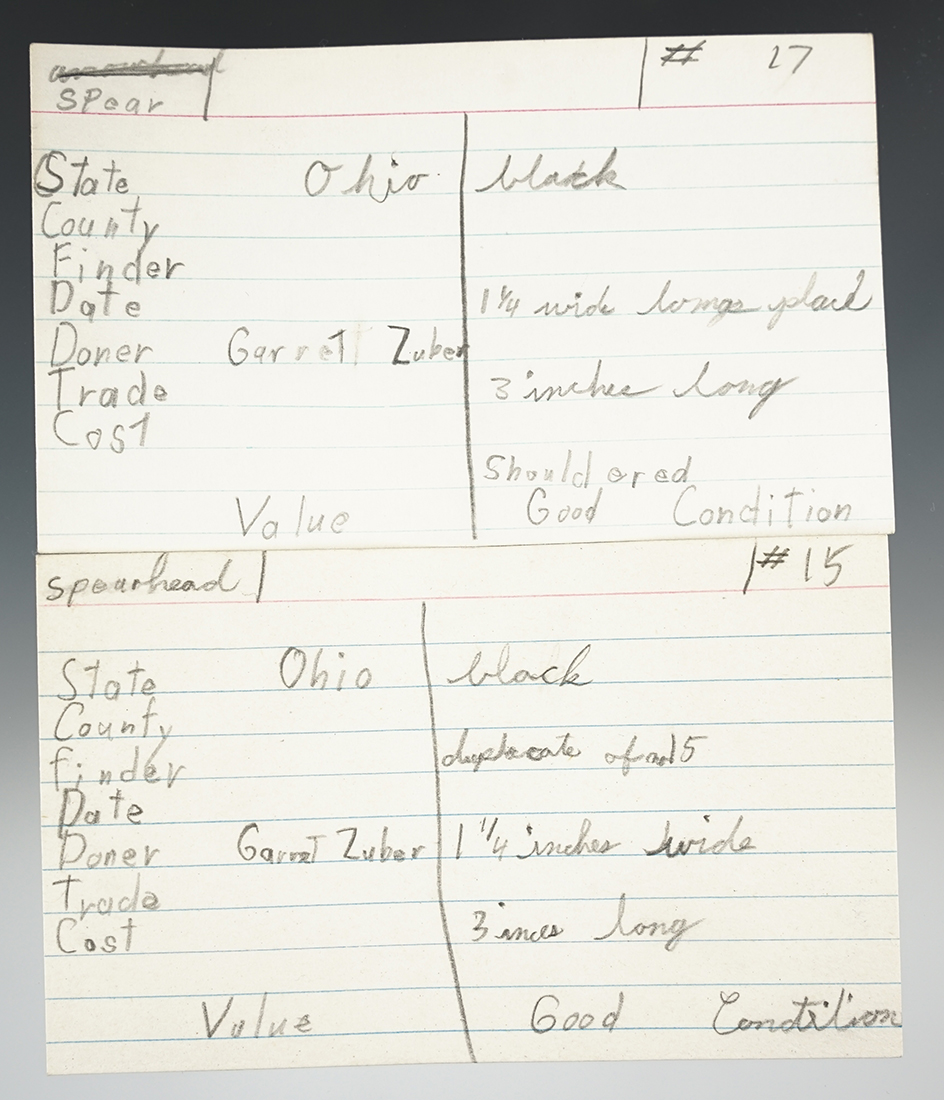 # 17
SPear
State Ohio black
County
Finder
Date 1 1/4 wide
Doner Garrett Zuber
Trade 3 inches long
Cost
Shouldored
Value Good Condition
spearhead # 15
State Ohio black
County
Finder of no 15
Date
Doner Garret Zuber 1 1/4 inches wide
Trade
Cost 3 inces long
Value Good Condition